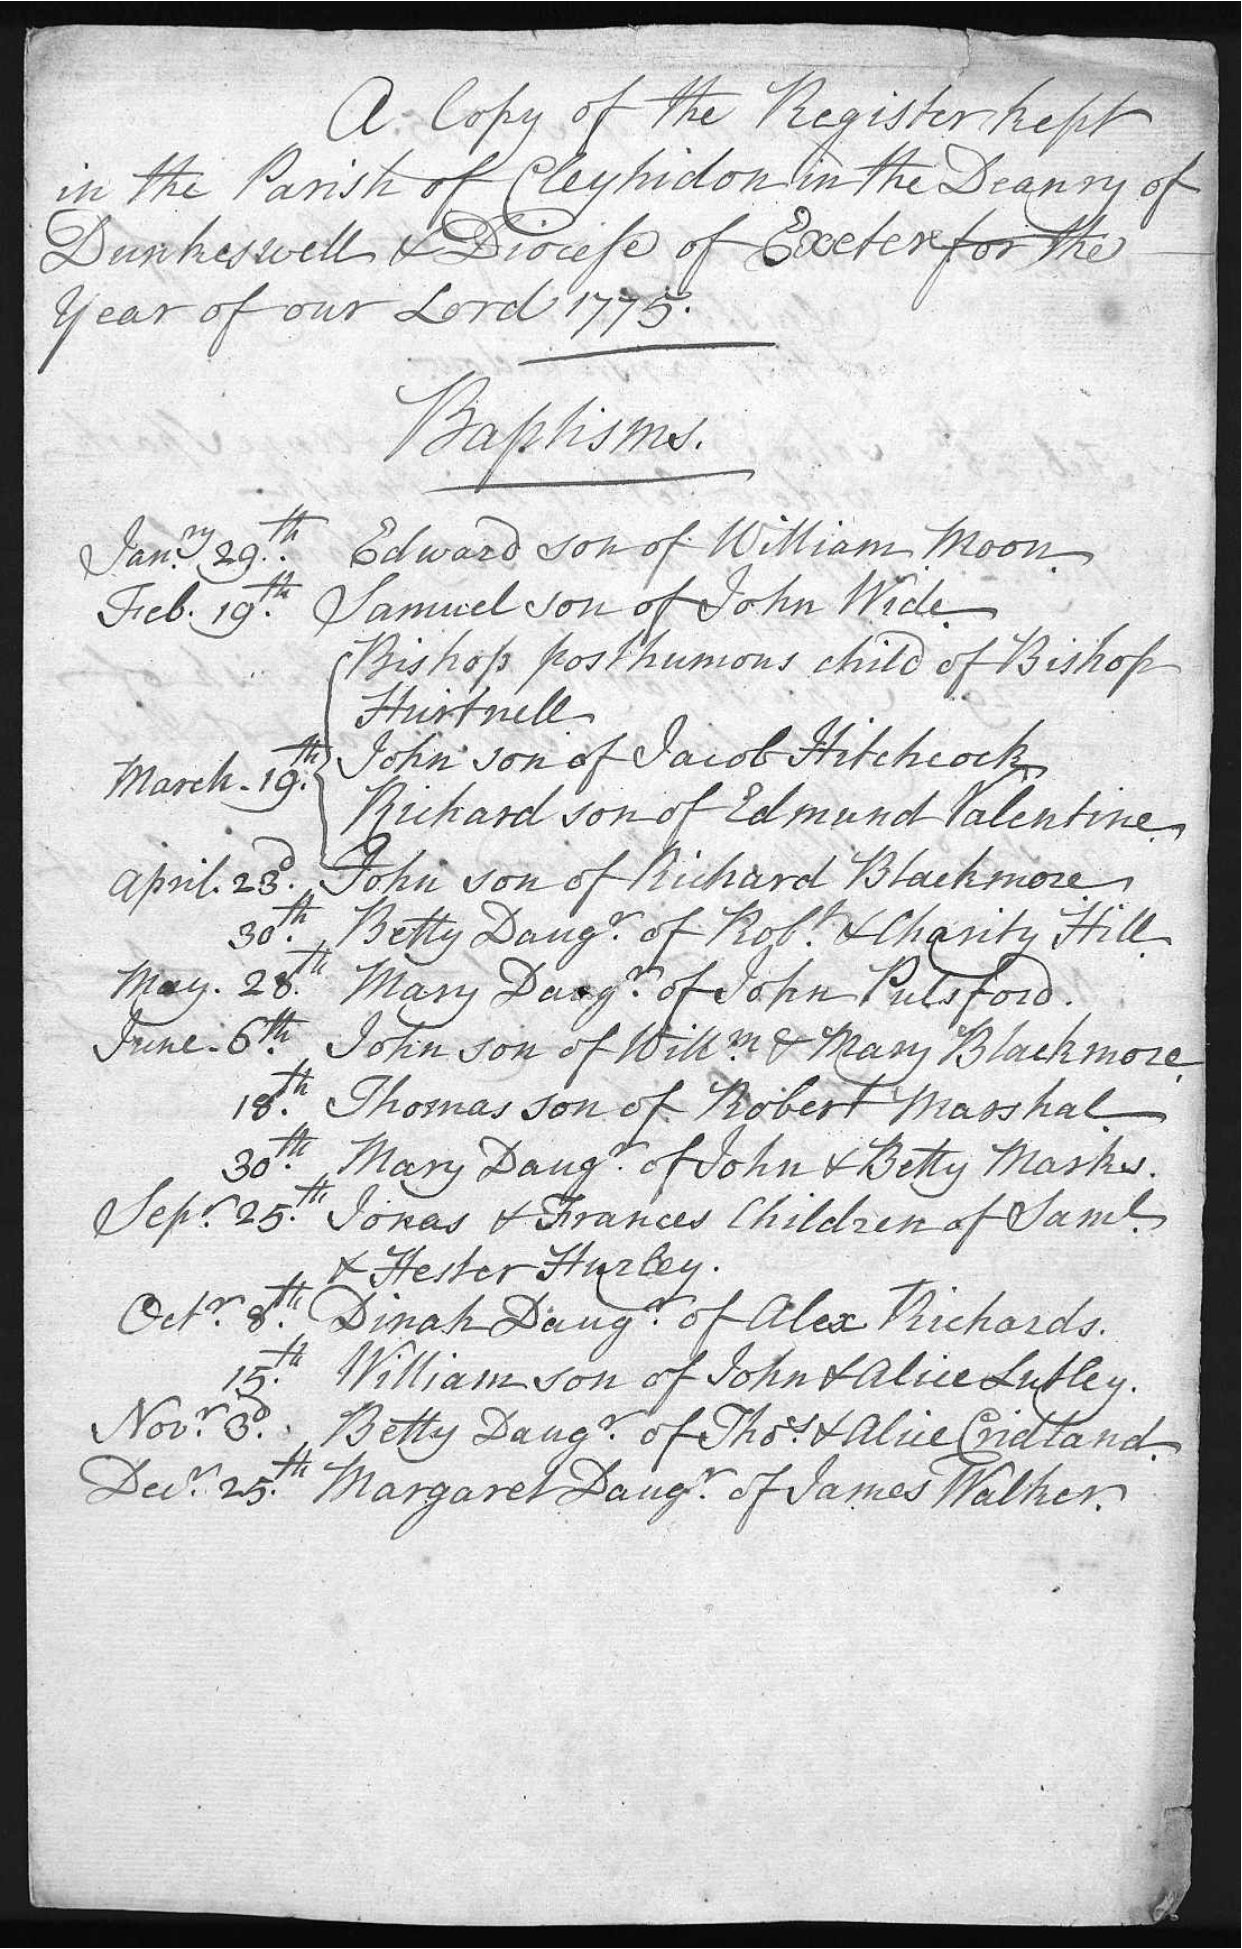 A Copy of the Register kept
in the Parish of Cleyhidon in the Deanry of
Dunkeswell & Diocese of Exeter for the
Year of our Lord 1775.
Baptisms.
Jan.ry 29.th Edward son of William Moon.
Feb. 19.th Samuel son of John Wide
Bishop posthumous child of Bishop
Hurtnell
March. 19.th John son of Jacob Hitchcock
Richard son of Edmund Valentine
April. 23.d John son of Richard Blackmore
30.th Betty Daug.r of Rob.t & Charity Hill
May. 28.th Mary Daug.r of John Pulsford.
June. 6.th John son of Will.m & Mary Blackmore
18.th Thomas son of Robert Marshal
30.th Mary Daug.r of John & Betty Marks.
Sep.r 25.th Jonas & Frances Children of Sam.l
& Hester Hurley.
Oct.r 8.th Dinah Daug.r of Alex Richards.
15.th William son of John & Alice Lutley.
Nov.r 3.d Betty Daug.r of Tho.s & Alice Cridland.
Dec.r 25.th Margaret Daug.r of James Walker.